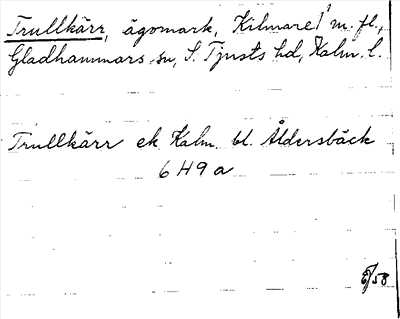 Trullkärr, ägomark, Kilmare 1 m. fl.,
Gladhammars sn, S. Tjusts hd, Kalm. l.
Trullkärr ek. Kalm. bl. Åldersbäck
6 H 9 a
/58